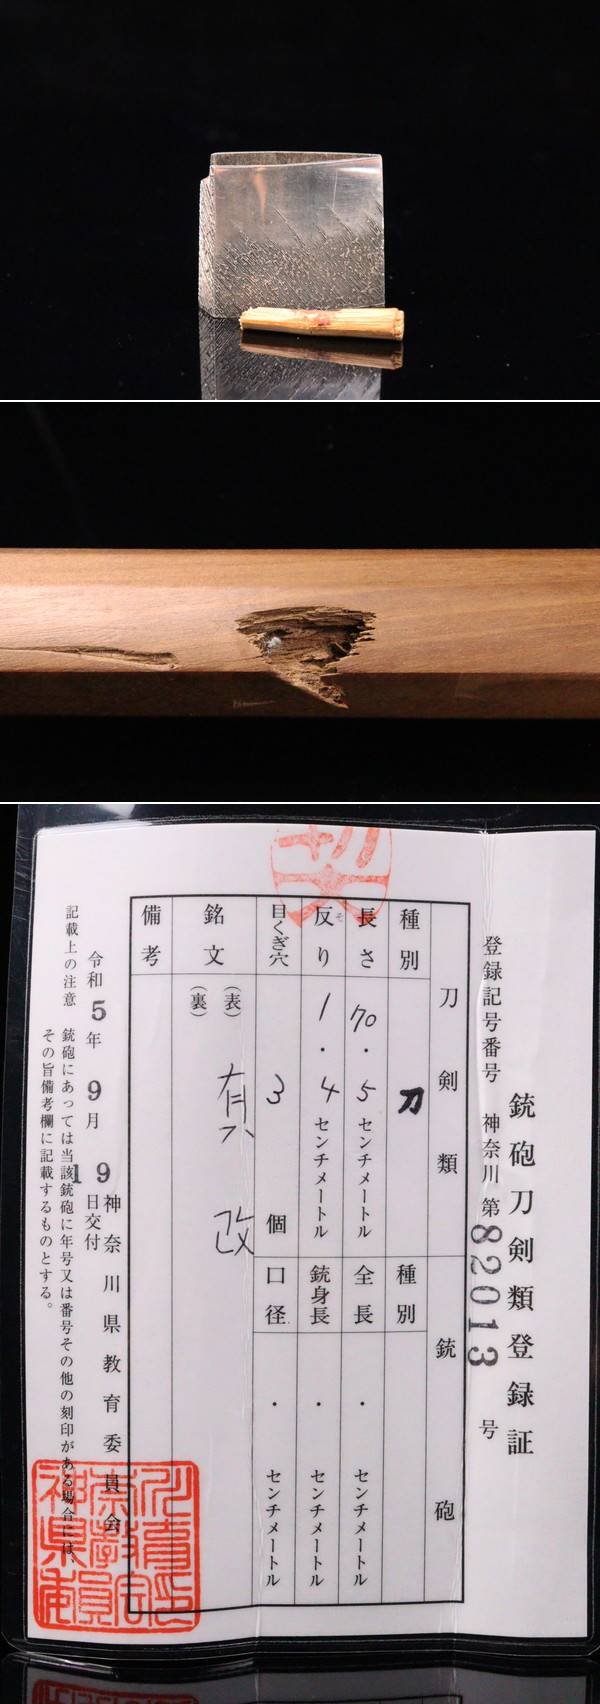 銃砲刀剣類登録証
登録記号番号 神奈川 第82013号
刀剣類
種別 刀
長さ 70.5センチメートル
反り 1.4センチメートル
そ
目くぎ穴 3個
銘文
（表）
（裏）
改
備考
銃砲
種別
全長 ・ センチメートル
銃身長 ・ センチメートル
口径 ・ センチメートル
令和5年9月19日交付
神奈川県教育委員会
記載上の注意 銃砲にあっては当該銃砲に年号又は番号その他の刻印がある場合には、
その旨備考欄に記載するものとする。